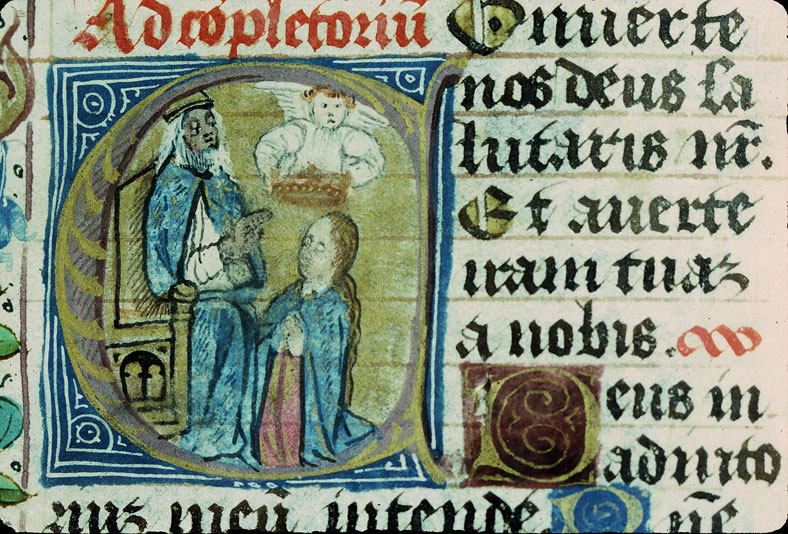 Ad cōpletoriū Conuerte
nos deus sa
lutaris nr̄.
Et auerte
iram tuaz
a nobis.
Deus in
adiuto
riuz meū intende.